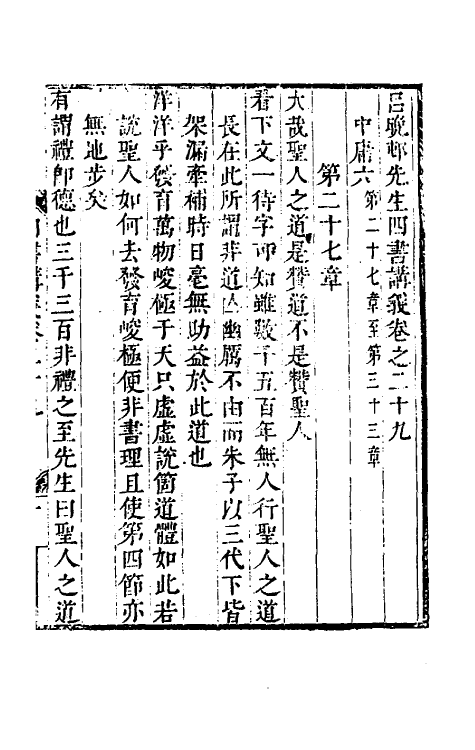 呂晚邨先生四書講義卷之二十九
中庸六第二十七章至第三十三章
第二十七章
大哉聖人之道是贊道不是贊聖人
看下文一待字即知雖數千五百年無人行聖人之道
長在此所謂非道亡幽厲不由而朱子以三代下皆
架漏牽補時日毫無助益於此道也
洋洋乎發育萬物峻極于天只虛虛說箇道體如此若
說聖人如何去發育峻極便非書理且使第四節亦
無地步矣
有謂禮卽德也三千三百非禮之至先生曰聖人之道